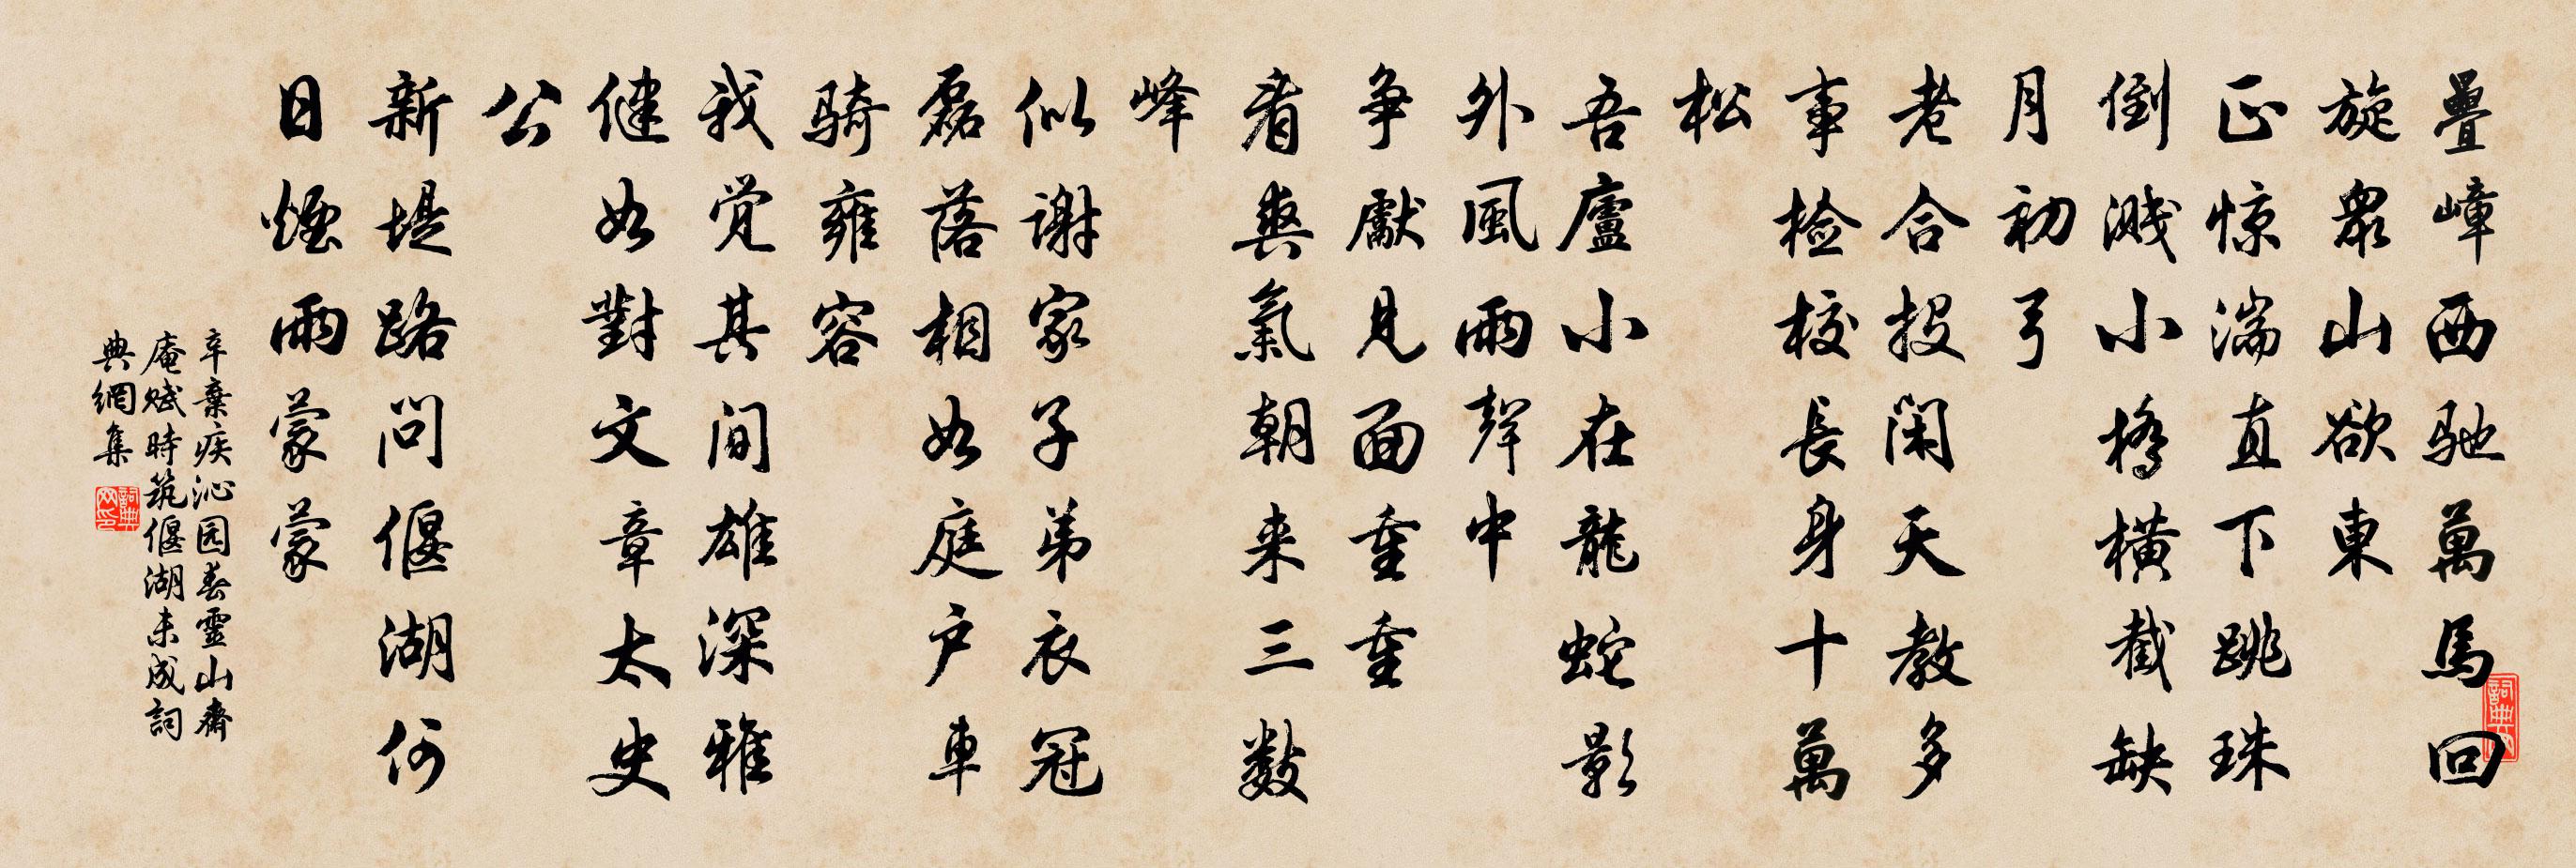 疊嶂西馳萬馬回
旋眾山欲東
正惊湍直下跳珠
倒溅小橋横截缺
月初弓
老合投闲天教多
事检校長身十萬
松
吾廬小在龍蛇影
外風雨聲中
争獻見面重重
看爽氣朝来三数
峰
似谢家子弟衣冠
磊落相如庭户車
骑雍容
我觉其间雄深雅
健如對文章太史
公
新堤路问偃湖何
日煙雨蒙蒙
辛棄疾沁园春靈山齊
庵赋時筑偃湖未成詞
典網集